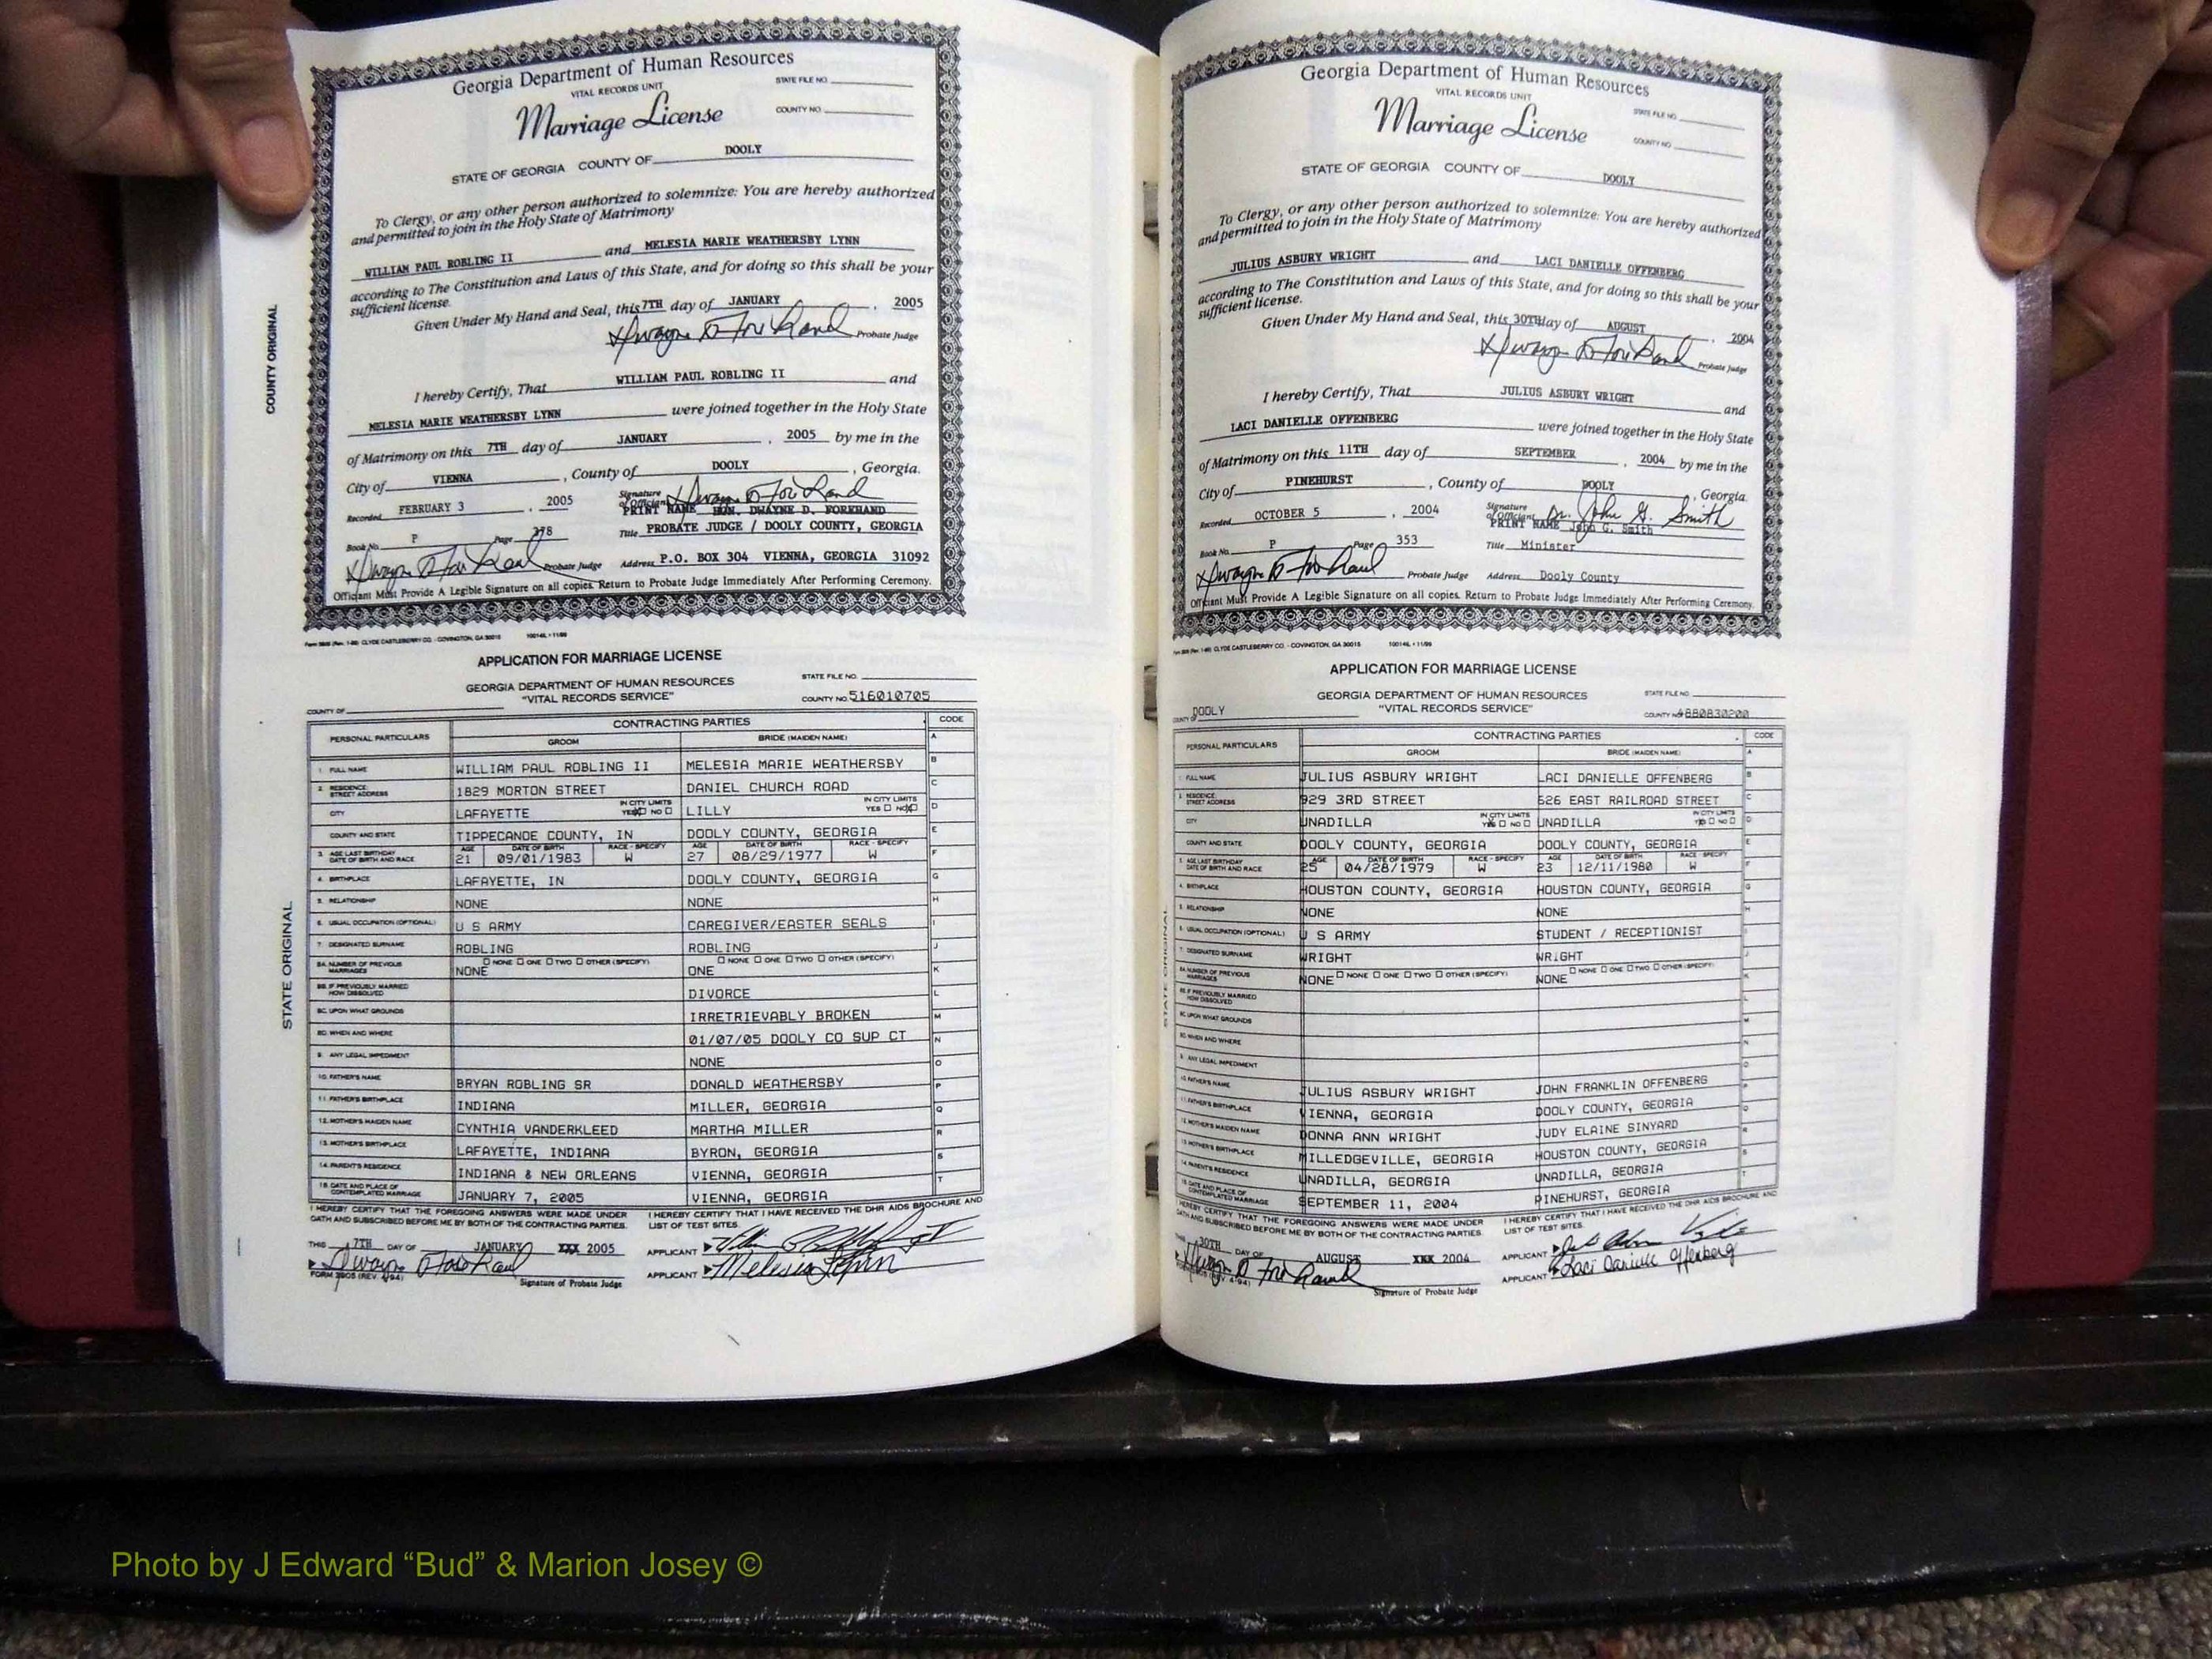 Georgia Department of Human Resources
VITAL RECORDS UNIT
STATE FILE NO.
Marriage License
COUNTY NO.
STATE OF GEORGIA COUNTY OF DOOLY
To Clergy, or any other person authorized to solemnize: You are hereby authorized
and permitted to join in the Holy State of Matrimony
WILLIAM PAUL ROBLING II and MELESIA MARIE WEATHERSBY LYNN
according to The Constitution and Laws of this State, and for doing so this shall be your
sufficient license.
Given Under My Hand and Seal, this 7TH day of JANUARY, 2005
Probate Judge
I hereby Certify, That WILLIAM PAUL ROBLING II and
MELESIA MARIE WEATHERSBY LYNN were joined together in the Holy State
of Matrimony on this 7TH day of JANUARY, 2005 by me in the
City of VIENNA, County of DOOLY, Georgia.
Recorded FEBRUARY 3, 2005 Signature of Officiant
PRINT NAME HON. DWAYNE D. FOREHAND
Title PROBATE JUDGE / DOOLY COUNTY, GEORGIA
Book No. P Page 378
Probate Judge Address P.O. BOX 304 VIENNA, GEORGIA 31092
Officiant Must Provide A Legible Signature on all copies. Return to Probate Judge Immediately After Performing Ceremony.
CLYDE CASTLEBERRY CO. - COVINGTON, GA 30015
COUNTY ORIGINAL
APPLICATION FOR MARRIAGE LICENSE
GEORGIA DEPARTMENT OF HUMAN RESOURCES
"VITAL RECORDS SERVICE"
STATE FILE NO.
COUNTY NO. 516010705
COUNTY OF
STATE ORIGINAL
PERSONAL PARTICULARS CONTRACTING PARTIES CODE
GROOM BRIDE (MAIDEN NAME) A
1. FULL NAME WILLIAM PAUL ROBLING II MELESIA MARIE WEATHERSBY B
2. RESIDENCE: STREET ADDRESS 1829 MORTON STREET DANIEL CHURCH ROAD C
CITY LAFAYETTE IN CITY LIMITS YES NO LILLY IN CITY LIMITS YES NO D
COUNTY AND STATE TIPPECANOE COUNTY, IN DOOLY COUNTY, GEORGIA E
3. AGE LAST BIRTHDAY DATE OF BIRTH AND RACE AGE 21 DATE OF BIRTH 09/01/1983 RACE - SPECIFY W AGE 27 DATE OF BIRTH 08/29/1977 RACE - SPECIFY W F
4. BIRTHPLACE LAFAYETTE, IN DOOLY COUNTY, GEORGIA G
5. RELATIONSHIP NONE NONE H
6. USUAL OCCUPATION (OPTIONAL) U S ARMY CAREGIVER/EASTER SEALS I
7. DESIGNATED SURNAME ROBLING ROBLING J
8A. NUMBER OF PREVIOUS MARRIAGES NONE ☐ NONE ☐ ONE ☐ TWO ☐ OTHER (SPECIFY) ONE ☐ NONE ☐ ONE ☐ TWO ☐ OTHER (SPECIFY) K
8B. IF PREVIOUSLY MARRIED HOW DISSOLVED DIVORCE L
8C. UPON WHAT GROUNDS IRRETRIEVABLY BROKEN M
8D. WHEN AND WHERE 01/07/05 DOOLY CO SUP CT N
9. ANY LEGAL IMPEDIMENT NONE O
10. FATHER'S NAME BRYAN ROBLING SR DONALD WEATHERSBY P
11. FATHER'S BIRTHPLACE INDIANA MILLER, GEORGIA Q
12. MOTHER'S MAIDEN NAME CYNTHIA VANDERKLEED MARTHA MILLER R
13. MOTHER'S BIRTHPLACE LAFAYETTE, INDIANA BYRON, GEORGIA S
14. PARENT'S RESIDENCE INDIANA & NEW ORLEANS VIENNA, GEORGIA T
15. DATE AND PLACE OF CONTEMPLATED MARRIAGE JANUARY 7, 2005 VIENNA, GEORGIA
I HEREBY CERTIFY THAT THE FOREGOING ANSWERS WERE MADE UNDER
OATH AND SUBSCRIBED BEFORE ME BY BOTH OF THE CONTRACTING PARTIES.
I HEREBY CERTIFY THAT I HAVE RECEIVED THE DHR AIDS BROCHURE AND
LIST OF TEST SITES.
THIS 7TH DAY OF JANUARY XXX 2005 APPLICANT
APPLICANT Melesia Lynn
FORM 3905 (REV. 4/94) Signature of Probate Judge
Georgia Department of Human Resources
VITAL RECORDS UNIT
STATE FILE NO.
Marriage License
COUNTY NO.
STATE OF GEORGIA COUNTY OF DOOLY
To Clergy, or any other person authorized to solemnize: You are hereby authorized
and permitted to join in the Holy State of Matrimony
JULIUS ASBURY WRIGHT and LACI DANIELLE OFFENBERG
according to The Constitution and Laws of this State, and for doing so this shall be your
sufficient license.
Given Under My Hand and Seal, this 30TH day of AUGUST, 2004
Probate Judge
I hereby Certify, That JULIUS ASBURY WRIGHT and
LACI DANIELLE OFFENBERG were joined together in the Holy State
of Matrimony on this 11TH day of SEPTEMBER, 2004 by me in the
City of PINEHURST, County of DOOLY, Georgia.
Recorded OCTOBER 5, 2004 Signature of Officiant Dr. John G. Smith
PRINT NAME John G. Smith
Book No. P Page 353 Title Minister
Probate Judge Address Dooly County
Officiant Must Provide A Legible Signature on all copies. Return to Probate Judge Immediately After Performing Ceremony.
CLYDE CASTLEBERRY CO. - COVINGTON, GA 30015
APPLICATION FOR MARRIAGE LICENSE
GEORGIA DEPARTMENT OF HUMAN RESOURCES
"VITAL RECORDS SERVICE"
STATE FILE NO.
COUNTY NO. 4880830200
COUNTY OF DOOLY
STATE ORIGINAL
PERSONAL PARTICULARS CONTRACTING PARTIES CODE
GROOM BRIDE (MAIDEN NAME) A
1. FULL NAME JULIUS ASBURY WRIGHT LACI DANIELLE OFFENBERG B
2. RESIDENCE: STREET ADDRESS 929 3RD STREET 526 EAST RAILROAD STREET C
CITY UNADILLA IN CITY LIMITS YES NO UNADILLA IN CITY LIMITS YES NO D
COUNTY AND STATE DOOLY COUNTY, GEORGIA DOOLY COUNTY, GEORGIA E
3. AGE LAST BIRTHDAY DATE OF BIRTH AND RACE AGE 25 DATE OF BIRTH 04/28/1979 RACE - SPECIFY W AGE 23 DATE OF BIRTH 12/11/1980 RACE - SPECIFY W F
4. BIRTHPLACE HOUSTON COUNTY, GEORGIA HOUSTON COUNTY, GEORGIA G
5. RELATIONSHIP NONE NONE H
6. USUAL OCCUPATION (OPTIONAL) U S ARMY STUDENT / RECEPTIONIST I
7. DESIGNATED SURNAME WRIGHT WRIGHT J
8A. NUMBER OF PREVIOUS MARRIAGES NONE ☐ NONE ☐ ONE ☐ TWO ☐ OTHER (SPECIFY) NONE ☐ NONE ☐ ONE ☐ TWO ☐ OTHER (SPECIFY) K
8B. IF PREVIOUSLY MARRIED HOW DISSOLVED L
8C. UPON WHAT GROUNDS M
8D. WHEN AND WHERE N
9. ANY LEGAL IMPEDIMENT O
10. FATHER'S NAME JULIUS ASBURY WRIGHT JOHN FRANKLIN OFFENBERG P
11. FATHER'S BIRTHPLACE VIENNA, GEORGIA DOOLY COUNTY, GEORGIA Q
12. MOTHER'S MAIDEN NAME DONNA ANN WRIGHT JUDY ELAINE SINYARD R
13. MOTHER'S BIRTHPLACE MILLEDGEVILLE, GEORGIA HOUSTON COUNTY, GEORGIA S
14. PARENT'S RESIDENCE UNADILLA, GEORGIA UNADILLA, GEORGIA T
15. DATE AND PLACE OF CONTEMPLATED MARRIAGE SEPTEMBER 11, 2004 PINEHURST, GEORGIA
I HEREBY CERTIFY THAT THE FOREGOING ANSWERS WERE MADE UNDER
OATH AND SUBSCRIBED BEFORE ME BY BOTH OF THE CONTRACTING PARTIES.
I HEREBY CERTIFY THAT I HAVE RECEIVED THE DHR AIDS BROCHURE AND
LIST OF TEST SITES.
THIS 30TH DAY OF AUGUST XXX 2004 APPLICANT
APPLICANT Laci Danielle Offenberg
Signature of Probate Judge
Photo by J Edward “Bud” & Marion Josey ©